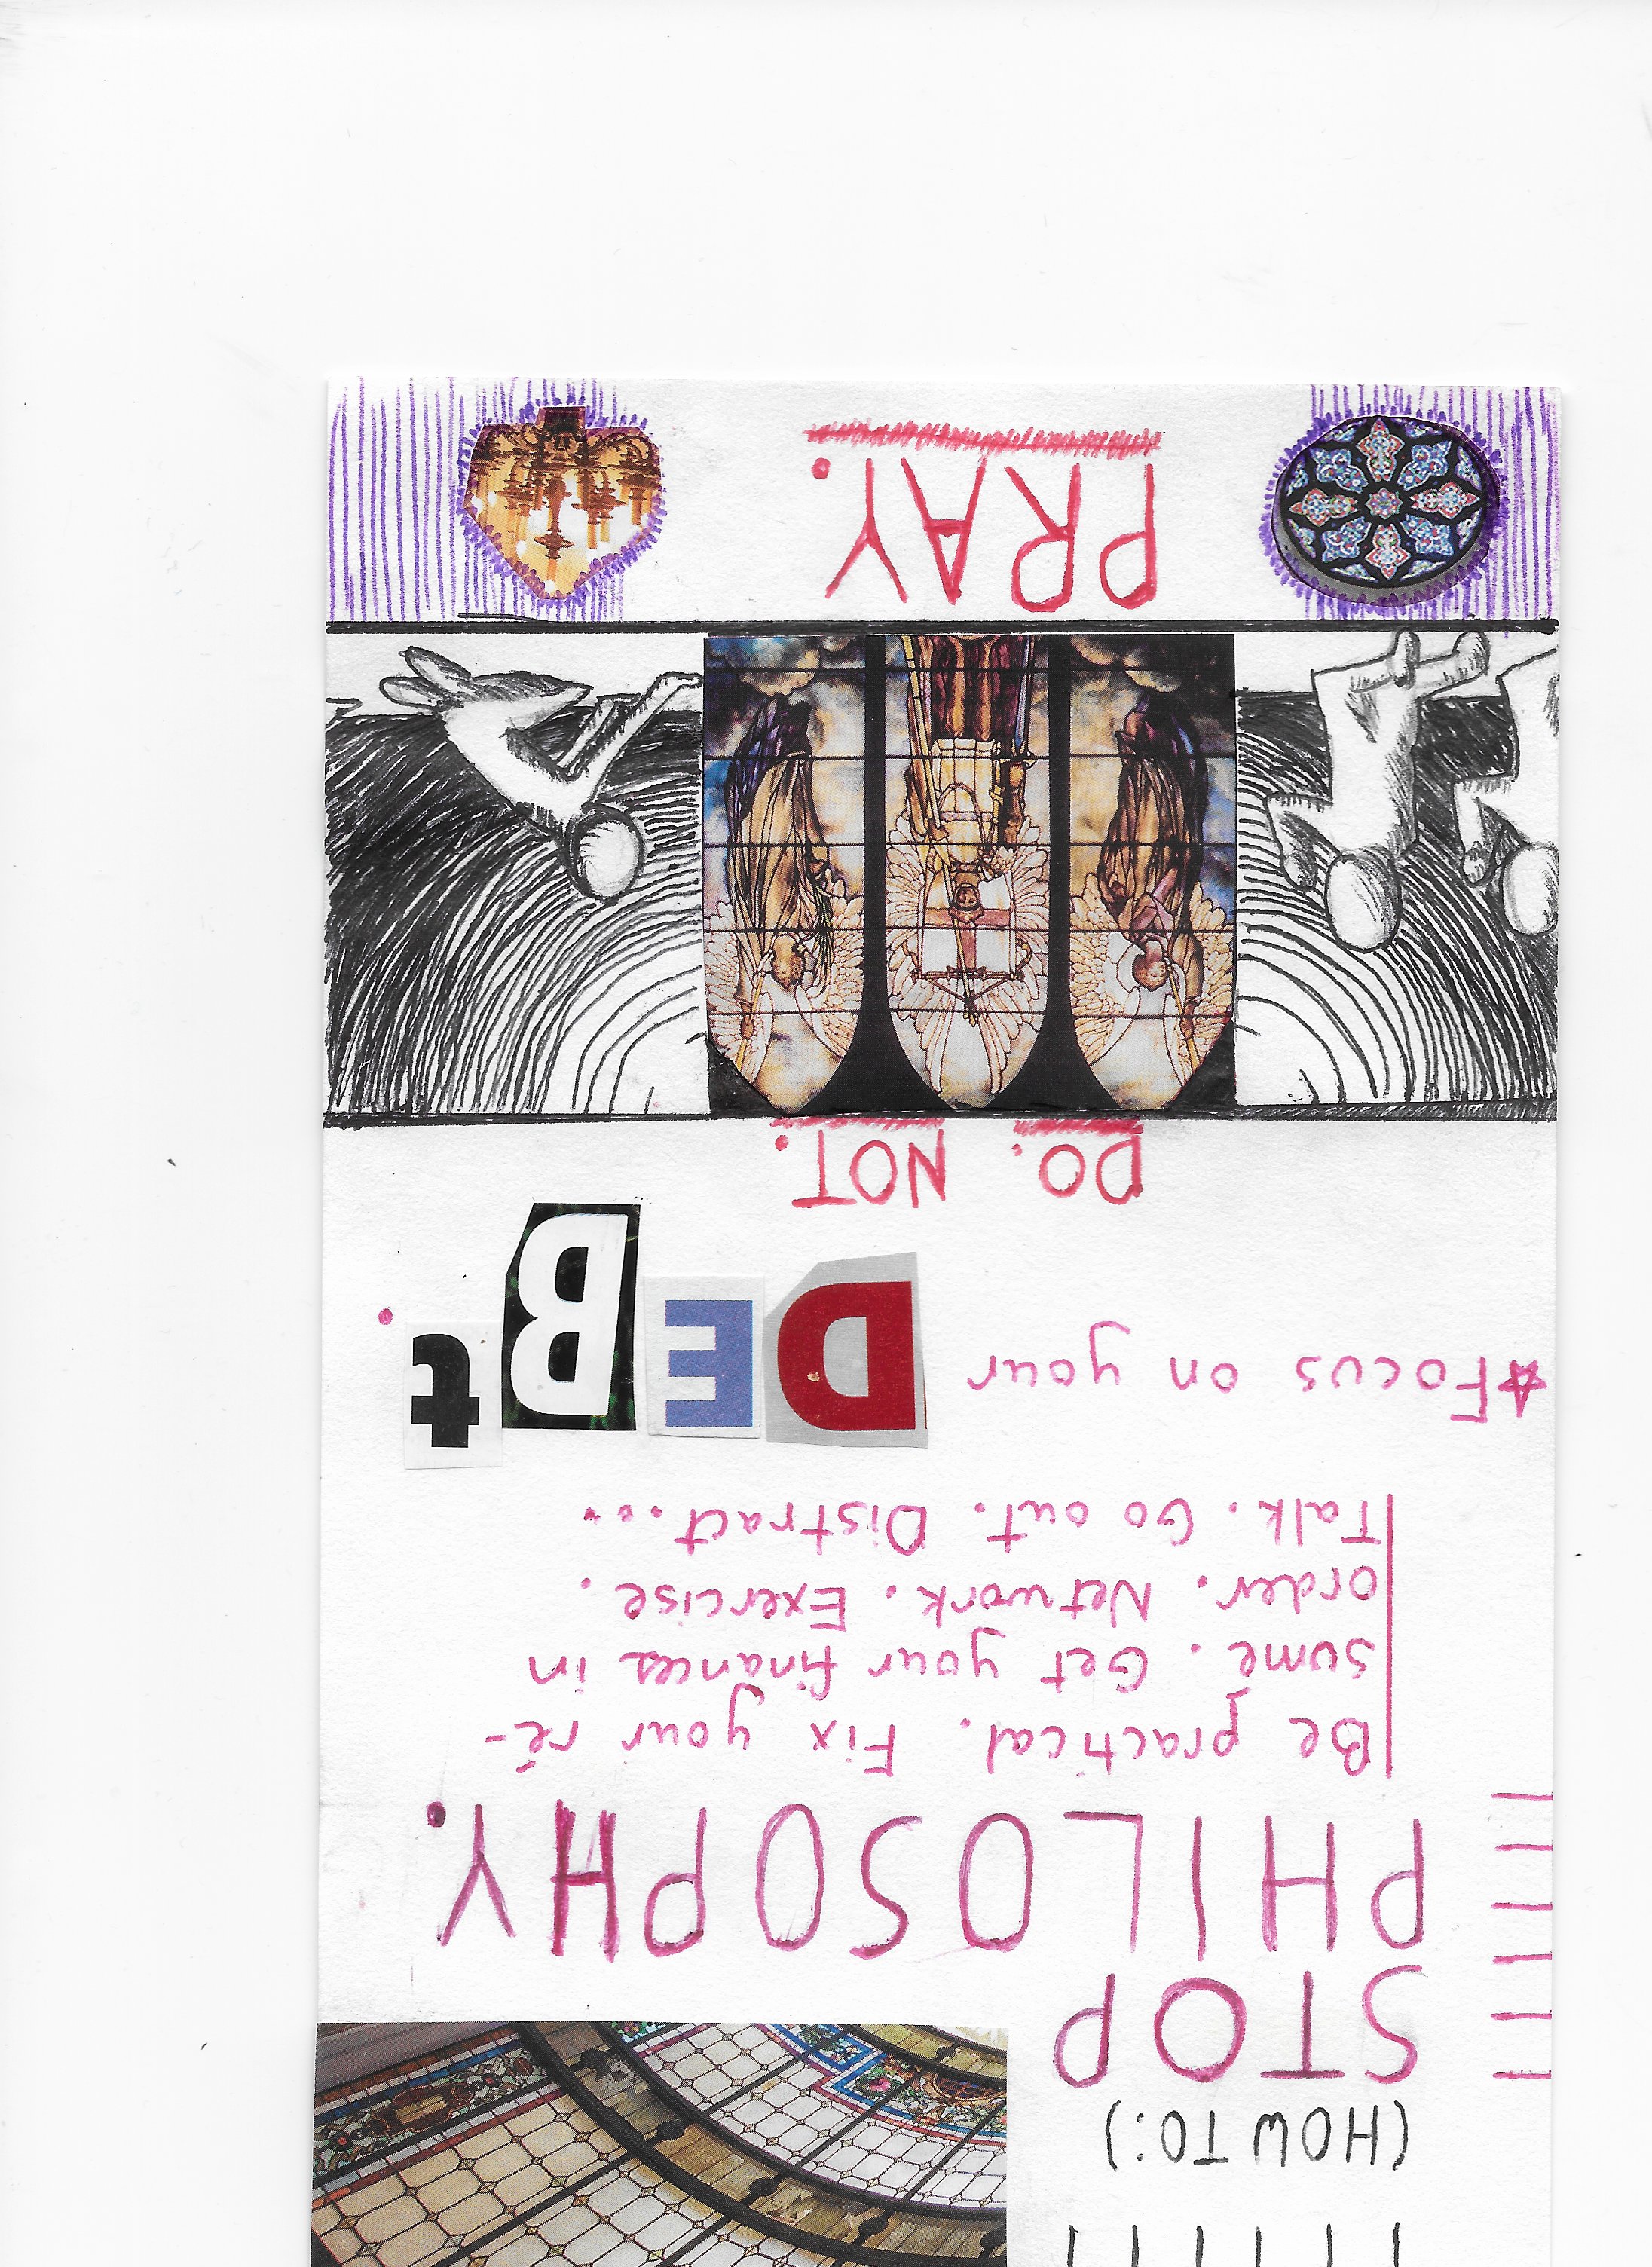 (HOW TO:)
STOP
PHILOSOPHY.
Be practical. Fix your ré-
sumé. Get your finances in
order. Network. Exercise.
Talk. Go out. Distract...
☆Focus on your DEBt.
DO. NOT.
PRAY.